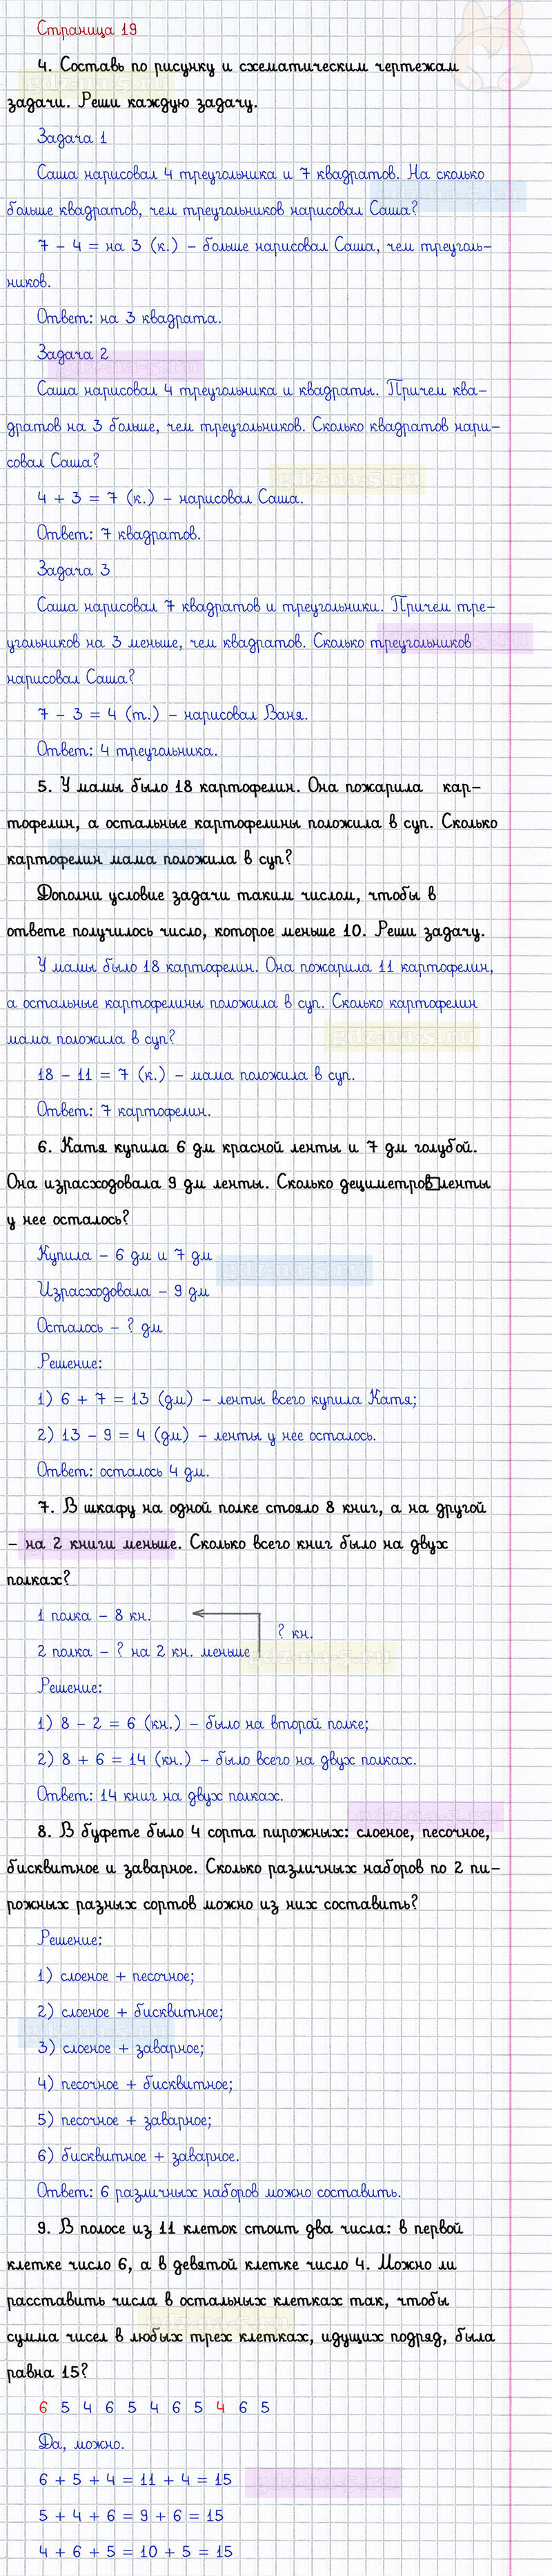 Страница 19
4. Составь по рисунку и схематическим чертежам
задачи. Реши каждую задачу.
Задача 1
Саша нарисовал 4 треугольника и 7 квадратов. На сколько
больше квадратов, чем треугольников нарисовал Саша?
7 – 4 = на 3 (к.) – больше нарисовал Саша, чем треуголь–
ников.
Ответ: на 3 квадрата.
Задача 2
Саша нарисовал 4 треугольника и квадраты. Причем ква–
дратов на 3 больше, чем треугольников. Сколько квадратов нари–
совал Саша?
4 + 3 = 7 (к.) – нарисовал Саша.
Ответ: 7 квадратов.
Задача 3
Саша нарисовал 7 квадратов и треугольники. Причем тре–
угольников на 3 меньше, чем квадратов. Сколько треугольников
нарисовал Саша?
7 – 3 = 4 (т.) – нарисовал Ваня.
Ответ: 4 треугольника.
5. У мамы было 18 картофелин. Она пожарила кар–
тофелин, а остальные картофелины положила в суп. Сколько
картофелин мама положила в суп?
Дополни условие задачи таким числом, чтобы в
ответе получилось число, которое меньше 10. Реши задачу.
У мамы было 18 картофелин. Она пожарила 11 картофелин,
а остальные картофелины положила в суп. Сколько картофелин
мама положила в суп?
18 – 11 = 7 (к.) – мама положила в суп.
Ответ: 7 картофелин.
6. Катя купила 6 дм красной ленты и 7 дм голубой.
Она израсходовала 9 дм ленты. Сколько дециметров ленты
у нее осталось?
Купила – 6 дм и 7 дм
Израсходовала – 9 дм
Осталось – ? дм
Решение:
1) 6 + 7 = 13 (дм) – ленты всего купила Катя;
2) 13 – 9 = 4 (дм) – ленты у нее осталось.
Ответ: осталось 4 дм.
7. В шкафу на одной полке стояло 8 книг, а на другой
– на 2 книги меньше. Сколько всего книг было на двух
полках?
1 полка – 8 кн.
? кн.
2 полка – ? на 2 кн. меньше
Решение:
1) 8 – 2 = 6 (кн.) – было на второй полке;
2) 8 + 6 = 14 (кн.) – было всего на двух полках.
Ответ: 14 книг на двух полках.
8. В буфете было 4 сорта пирожных: слоеное, песочное,
бисквитное и заварное. Сколько различных наборов по 2 пи–
рожных разных сортов можно из них составить?
Решение:
1) слоеное + песочное;
2) слоеное + бисквитное;
3) слоеное + заварное;
4) песочное + бисквитное;
5) песочное + заварное;
6) бисквитное + заварное.
Ответ: 6 различных наборов можно составить.
9. В полосе из 11 клеток стоит два числа: в первой
клетке число 6, а в девятой клетке число 4. Можно ли
расставить числа в остальных клетках так, чтобы
сумма чисел в любых трех клетках, идущих подряд, была
равна 15?
6 5 4 6 5 4 6 5 4 6 5
Да, можно.
6 + 5 + 4 = 11 + 4 = 15
5 + 4 + 6 = 9 + 6 = 15
4 + 6 + 5 = 10 + 5 = 15